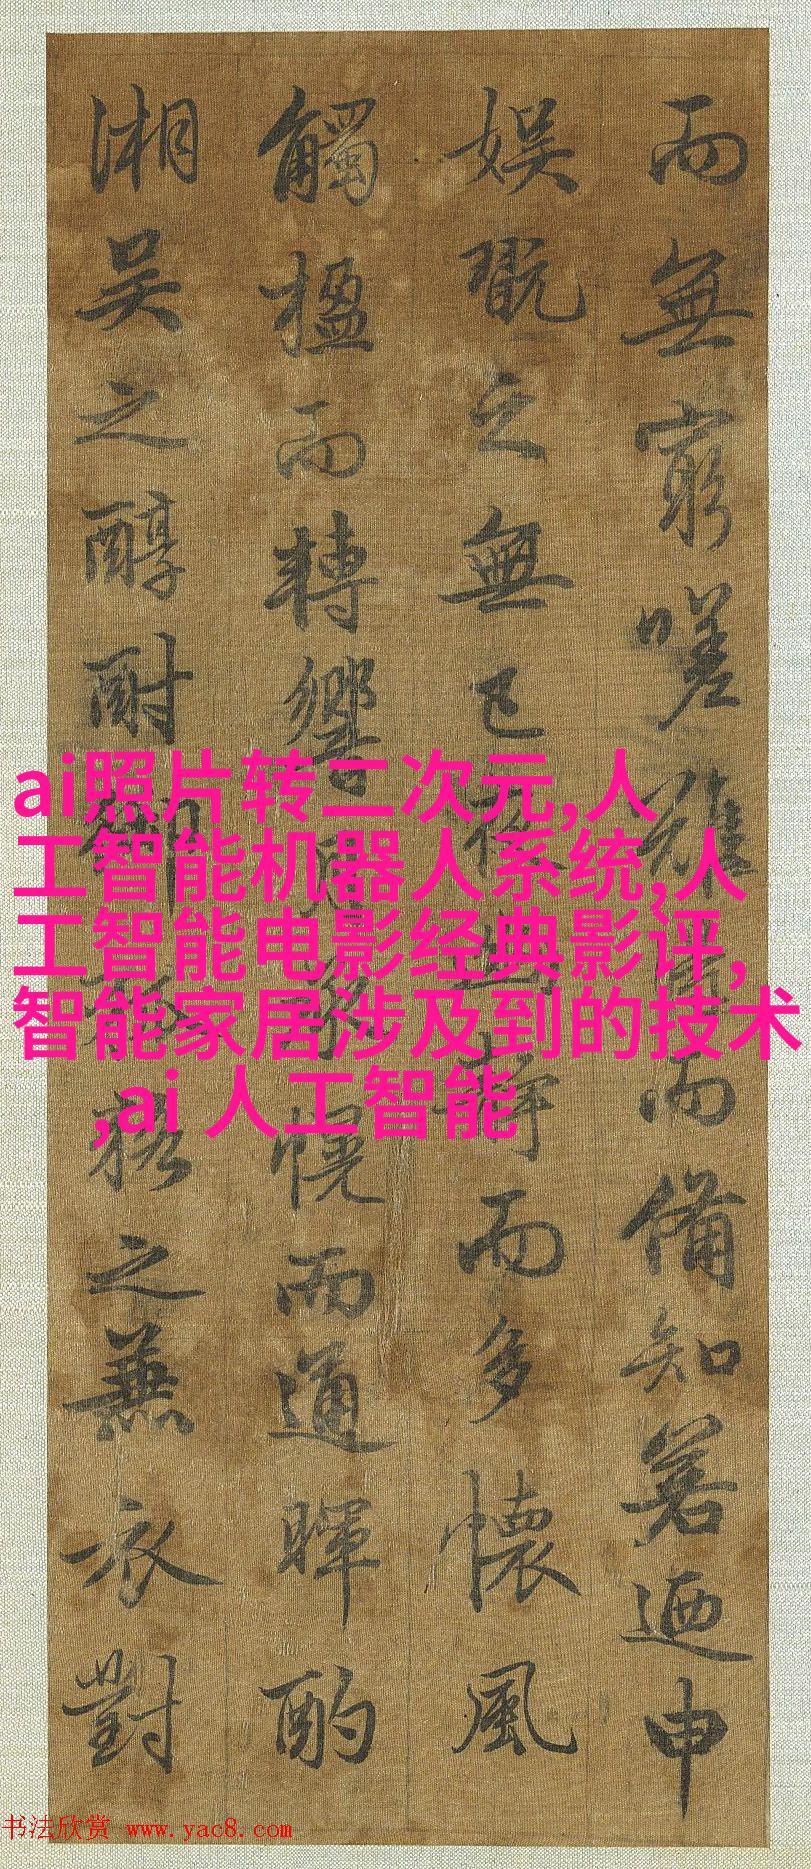 而無窮嗟難而備知若迺申
娛翫之無已夜幽靜而多懷風
觸楹而轉響月承幌而通暉酌
湘吳之醇酎御狐貉之兼衣對
ai照片转二次元,人
工智能机器人系统,人
工智能电影经典影评,
智能家居涉及到的技术
,ai 人工智能
书法欣赏 www.yac8.com